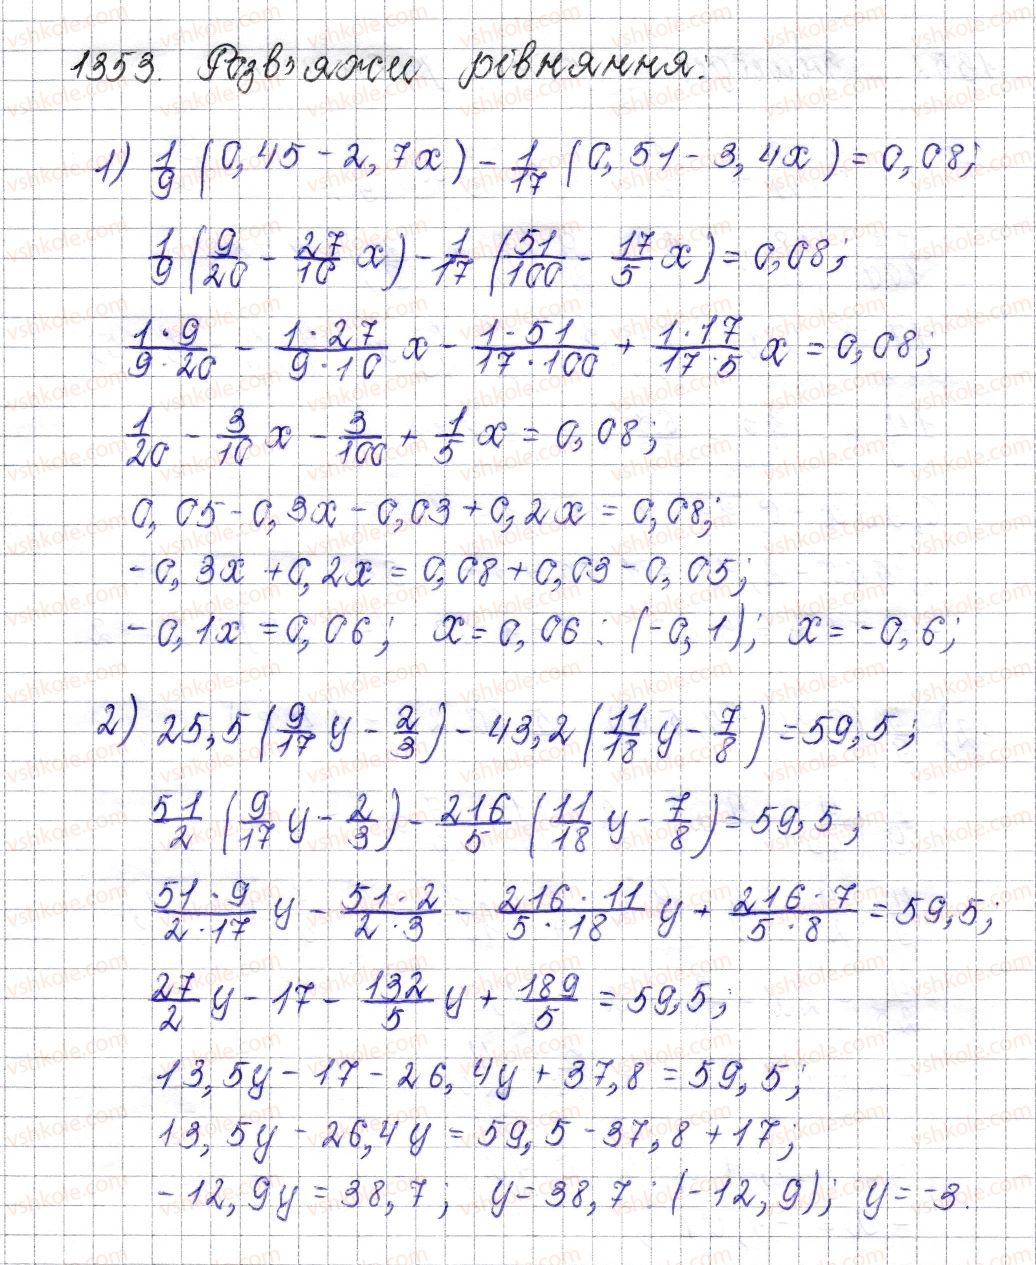 1353. Розв'яжи рівняння.
1) 1/9 (0,45 - 2,7x) - 1/17 (0,51 - 3,4x) = 0,08;
1/9 (9/20 - 27/10 x) - 1/17 (51/100 - 17/5 x) = 0,08;
1·9/9·20 - 1·27/9·10 x - 1·51/17·100 + 1·17/17·5 x = 0,08;
1/20 - 3/10 x - 3/100 + 1/5 x = 0,08;
0,05 - 0,3x - 0,03 + 0,2x = 0,08;
-0,3x + 0,2x = 0,08 + 0,03 - 0,05;
-0,1x = 0,06; x = 0,06 : (-0,1); x = -0,6;
2) 25,5 (9/17 y - 2/3) - 43,2 (11/18 y - 7/8) = 59,5;
51/2 (9/17 y - 2/3) - 216/5 (11/18 y - 7/8) = 59,5;
51·9/2·17 y - 51·2/2·3 - 216·11/5·18 y + 216·7/5·8 = 59,5;
27/2 y - 17 - 132/5 y + 189/5 = 59,5;
13,5y - 17 - 26,4y + 37,8 = 59,5;
13,5y - 26,4y = 59,5 - 37,8 + 17;
-12,9y = 38,7; y = 38,7 : (-12,9); y = -3.